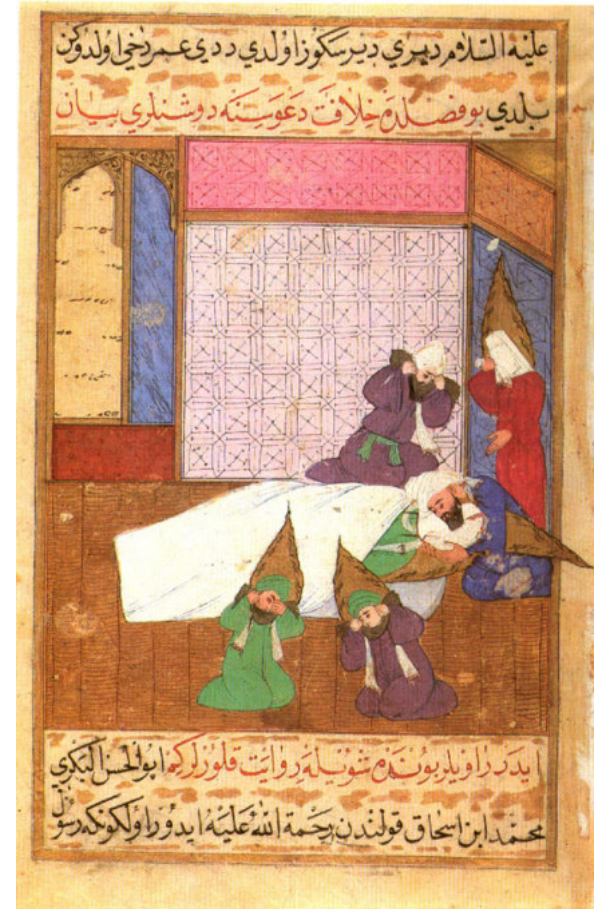 عليه السلام ديري دير سكوز اولدي ددي عمر دخي اولدوكن
بلدي بو فصلده خلافت دعوسنه دوشنلري بيان
ايدر راويلر بونده شويله روايت قلورلركم ابو الحسن البكري
محمد ابن اسحاق قولندن رحمة الله عليه ايدور اول كونكه رسول